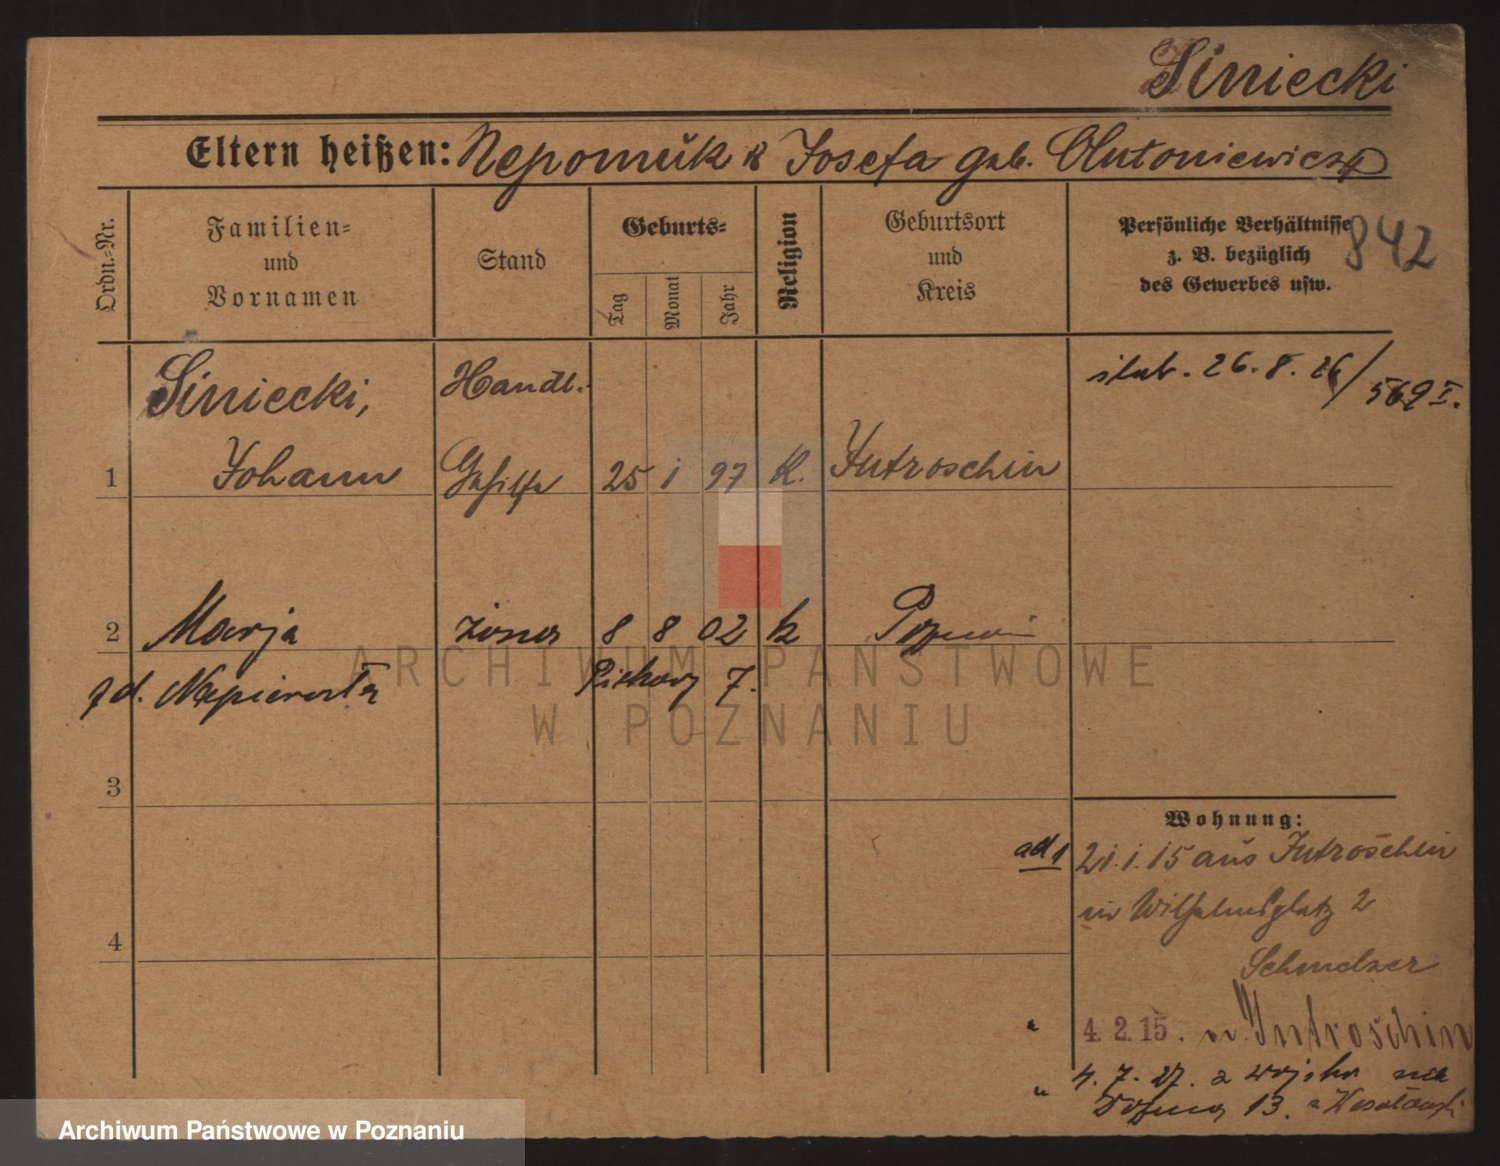 Siniecki
Eltern heißen: Nepomuk & Josefa geb. Antoniewicz
842
Ordn.-Nr.
Familien-
und
Vornamen
Stand
Geburts-
Tag
Monat
Jahr
Religion
Geburtsort
und
Kreis
Persönliche Verhältnisse
z. B. bezüglich
des Gewerbes usw.
1
Siniecki,
Johann
Handl.
Gehilfe
25 1 97 K.
Jutroschin
26.8.26/569 I.
2
Marja
żona
8 8 02 k
Poznań
Piekary 7.
3
4
Wohnung:
ad 1 21.1.15 aus Jutroschin
in Wilhelmsplatz 2
Schmelzer
" 4.2.15. n Jutroschin
" 4.7.27. z wojska na
13.
ARCHIWUM PAŃSTWOWE
W POZNANIU
Archiwum Państwowe w Poznaniu